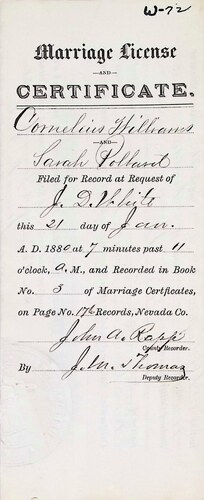 W-72
Marriage License
—AND—
CERTIFICATE.
Cornelius Williams
—AND—
Sarah Pollard
Filed for Record at Request of
J. D. White
this 21 day of Jan.
A. D. 1880 at 7 minutes past 11
o'clock, A. M., and Recorded in Book
No. 3 of Marriage Certficates,
on Page No. 176 Records, Nevada Co.
John A. Rapp
County Recorder.
By J. M. Thomas
Deputy Recorder.